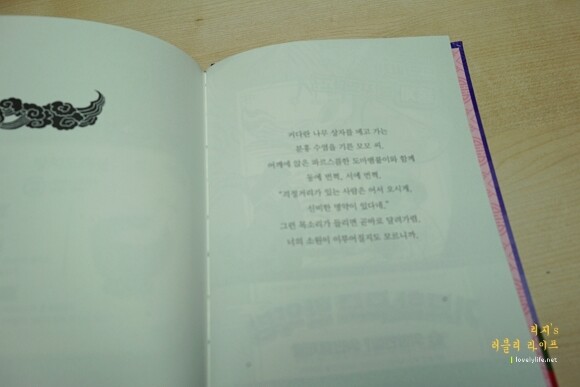 커다란 나무 상자를 메고 가는
분홍 수염을 기른 모모 씨.
어깨에 앉은 파르스름한 도마뱀붙이와 함께
동에 번쩍, 서에 번쩍.
"걱정거리가 있는 사람은 어서 오시게.
신비한 명약이 있다네."
그런 목소리가 들리면 곧바로 달려가렴.
너의 소원이 이루어질지도 모르니까.
리지's
러블리 라이프
lovelylife.net